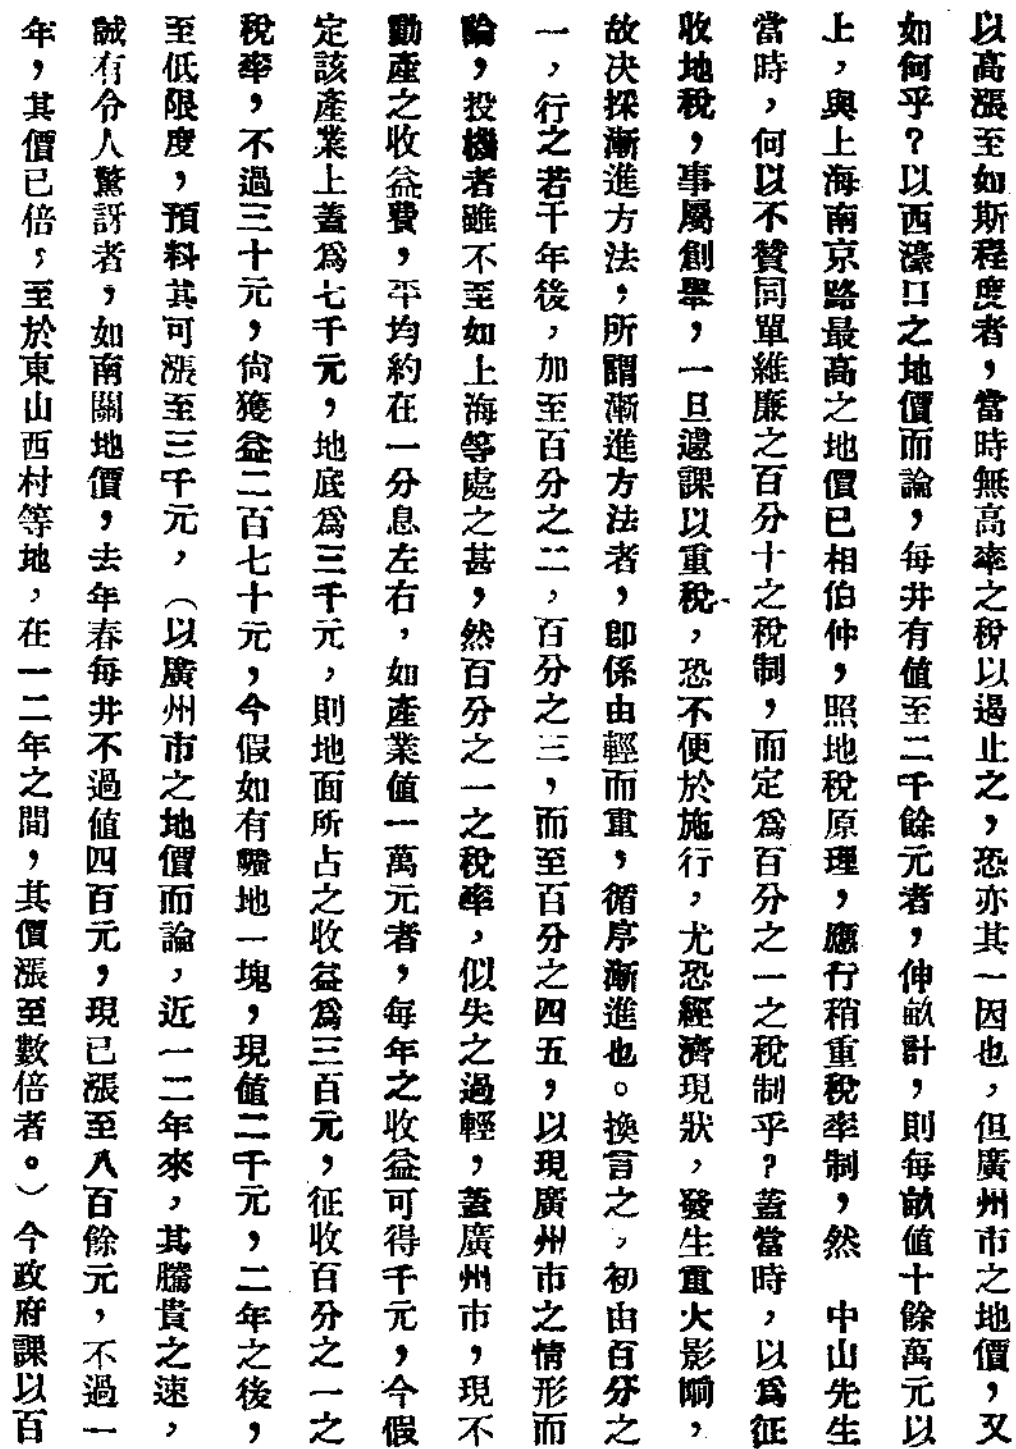 以高漲至如斯程度者，當時無高率之稅以遏止之，恐亦其一因也，但廣州市之地價，又
如何乎？以西濠口之地價而論，每井有値至二千餘元者，伸畝計，則每畝値十餘萬元以
上，與上海南京路最高之地價已相伯仲，照地稅原理，應行稍重稅率制，然　中山先生
當時，何以不贊同單維廉之百分十之稅制，而定爲百分之一之稅制乎？蓋當時，以爲征
收地稅，事屬創舉，一旦遽課以重稅，恐不便於施行，尤恐經濟現狀，發生重大影响，
故決採漸進方法，所謂漸進方法者，卽係由輕而重，循序漸進也。換言之，初由百分之
一，行之若干年後，加至百分之二，百分之三，而至百分之四五，以現廣州市之情形而
論，投機者雖不至如上海等處之甚，然百分之一之稅率，似失之過輕，蓋廣州市，現不
動產之收益費，平均約在一分息左右，如產業値一萬元者，每年之收益可得千元，今假
定該產業上蓋爲七千元，地底爲三千元，則地面所占之收益爲三百元，征收百分之一之
稅率，不過三十元，尙獲益二百七十元，今假如有曠地一塊，現値二千元，二年之後，
至低限度，預料其可漲至三千元，（以廣州市之地價而論，近一二年來，其騰貴之速，
誠有令人驚訝者，如南關地價，去年春每井不過値四百元，現已漲至八百餘元，不過一
年，其價已倍，至於東山西村等地，在一二年之間，其價漲至數倍者。）今政府課以百